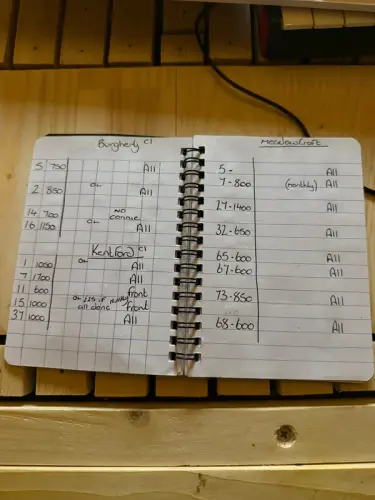 Burgherly Cl
5 750 All
OK
2 850 All
14 700 NO CONNIE
OK
16 1150 All
Kentford Cl
OK
1 1000 All
7 1700 All
11 600 front
15 1000 OK front
all done
37 1000 All
Meadowcroft
5 - All
7 - 800 (monthly) All
27 - 1400 All
32 - 650 All
65 - 600 All
67 - 600 All
73 - 850 All
68 - 600 All